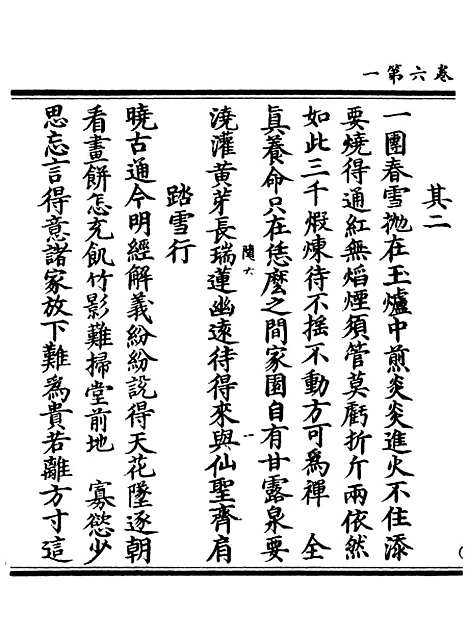 卷六第一
其二
一團春雪抛在玉爐中煎炎炎進火不住添
要燒得通紅無焰煙須管莫虧折斤兩依然
如此三千煅煉待不揺不動方可爲禪　全
眞養命只在恁麽之間家園自有甘露泉要
隨六
澆灌黄芽長瑞蓮幽遠待得來與仙聖齊肩
踏雪行
曉古通今明經解義紛紛説得天花墜逐朝
看畫餅怎充飢竹影難掃堂前地　寡慾少
思忘言得意諸家放下難爲貴若離方寸這